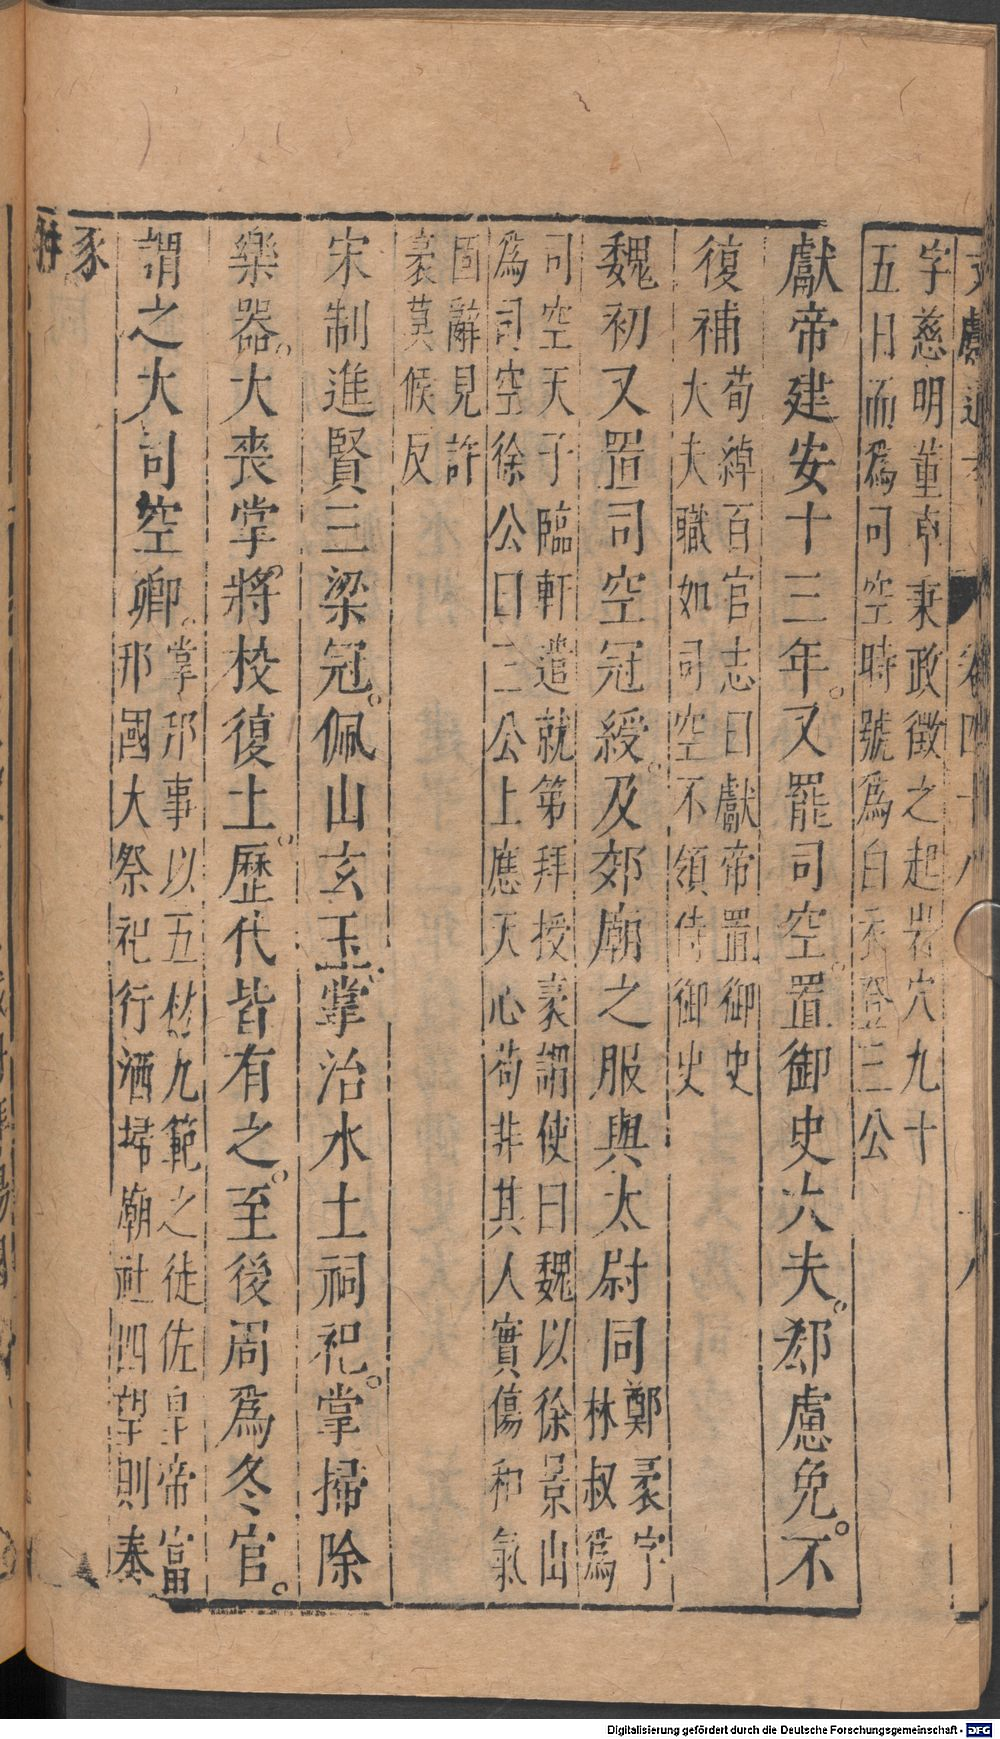 字慈明董卓秉政徵之起岩穴九十
五日而爲司空時號爲白衣登三公
獻帝建安十三年又罷司空置御史大夫郄慮免不
復補荀綽百官志曰獻帝置御史
大夫職如司空不領侍御史
魏初又置司空冠綬及郊廟之服與太尉同鄭袤字
林叔爲
司空天子臨軒遣就第拜授袤謂使曰魏以徐景山
爲司空徐公曰三公上應天心苟非其人實傷和氣
固辭見許
袤莫候反
宋制進賢三梁冠佩山玄玉掌治水土祠祀掌掃除
樂器大喪掌將校復土歷代皆有之至後周爲冬官
謂之大司空卿掌邦事以五材九範之徒佐皇帝富
邦國大祭祀行洒掃廟社四望則奉
豕
Digitalisierung gefördert durch die Deutsche Forschungsgemeinschaft - DFG